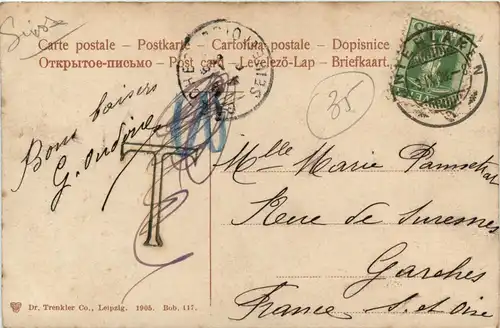 Suisse
Carte postale – Postkarte – Cartolina postale – Dopisnice
Открытое-письмо – Post card – Levelező-Lap – Briefkaart.
35
Bons baisers
G.
T
Mlle Marie
Rue de Suresnes
Garches
France S. et Oise
Dr. Trenkler Co., Leipzig. 1905. Bob. 417.